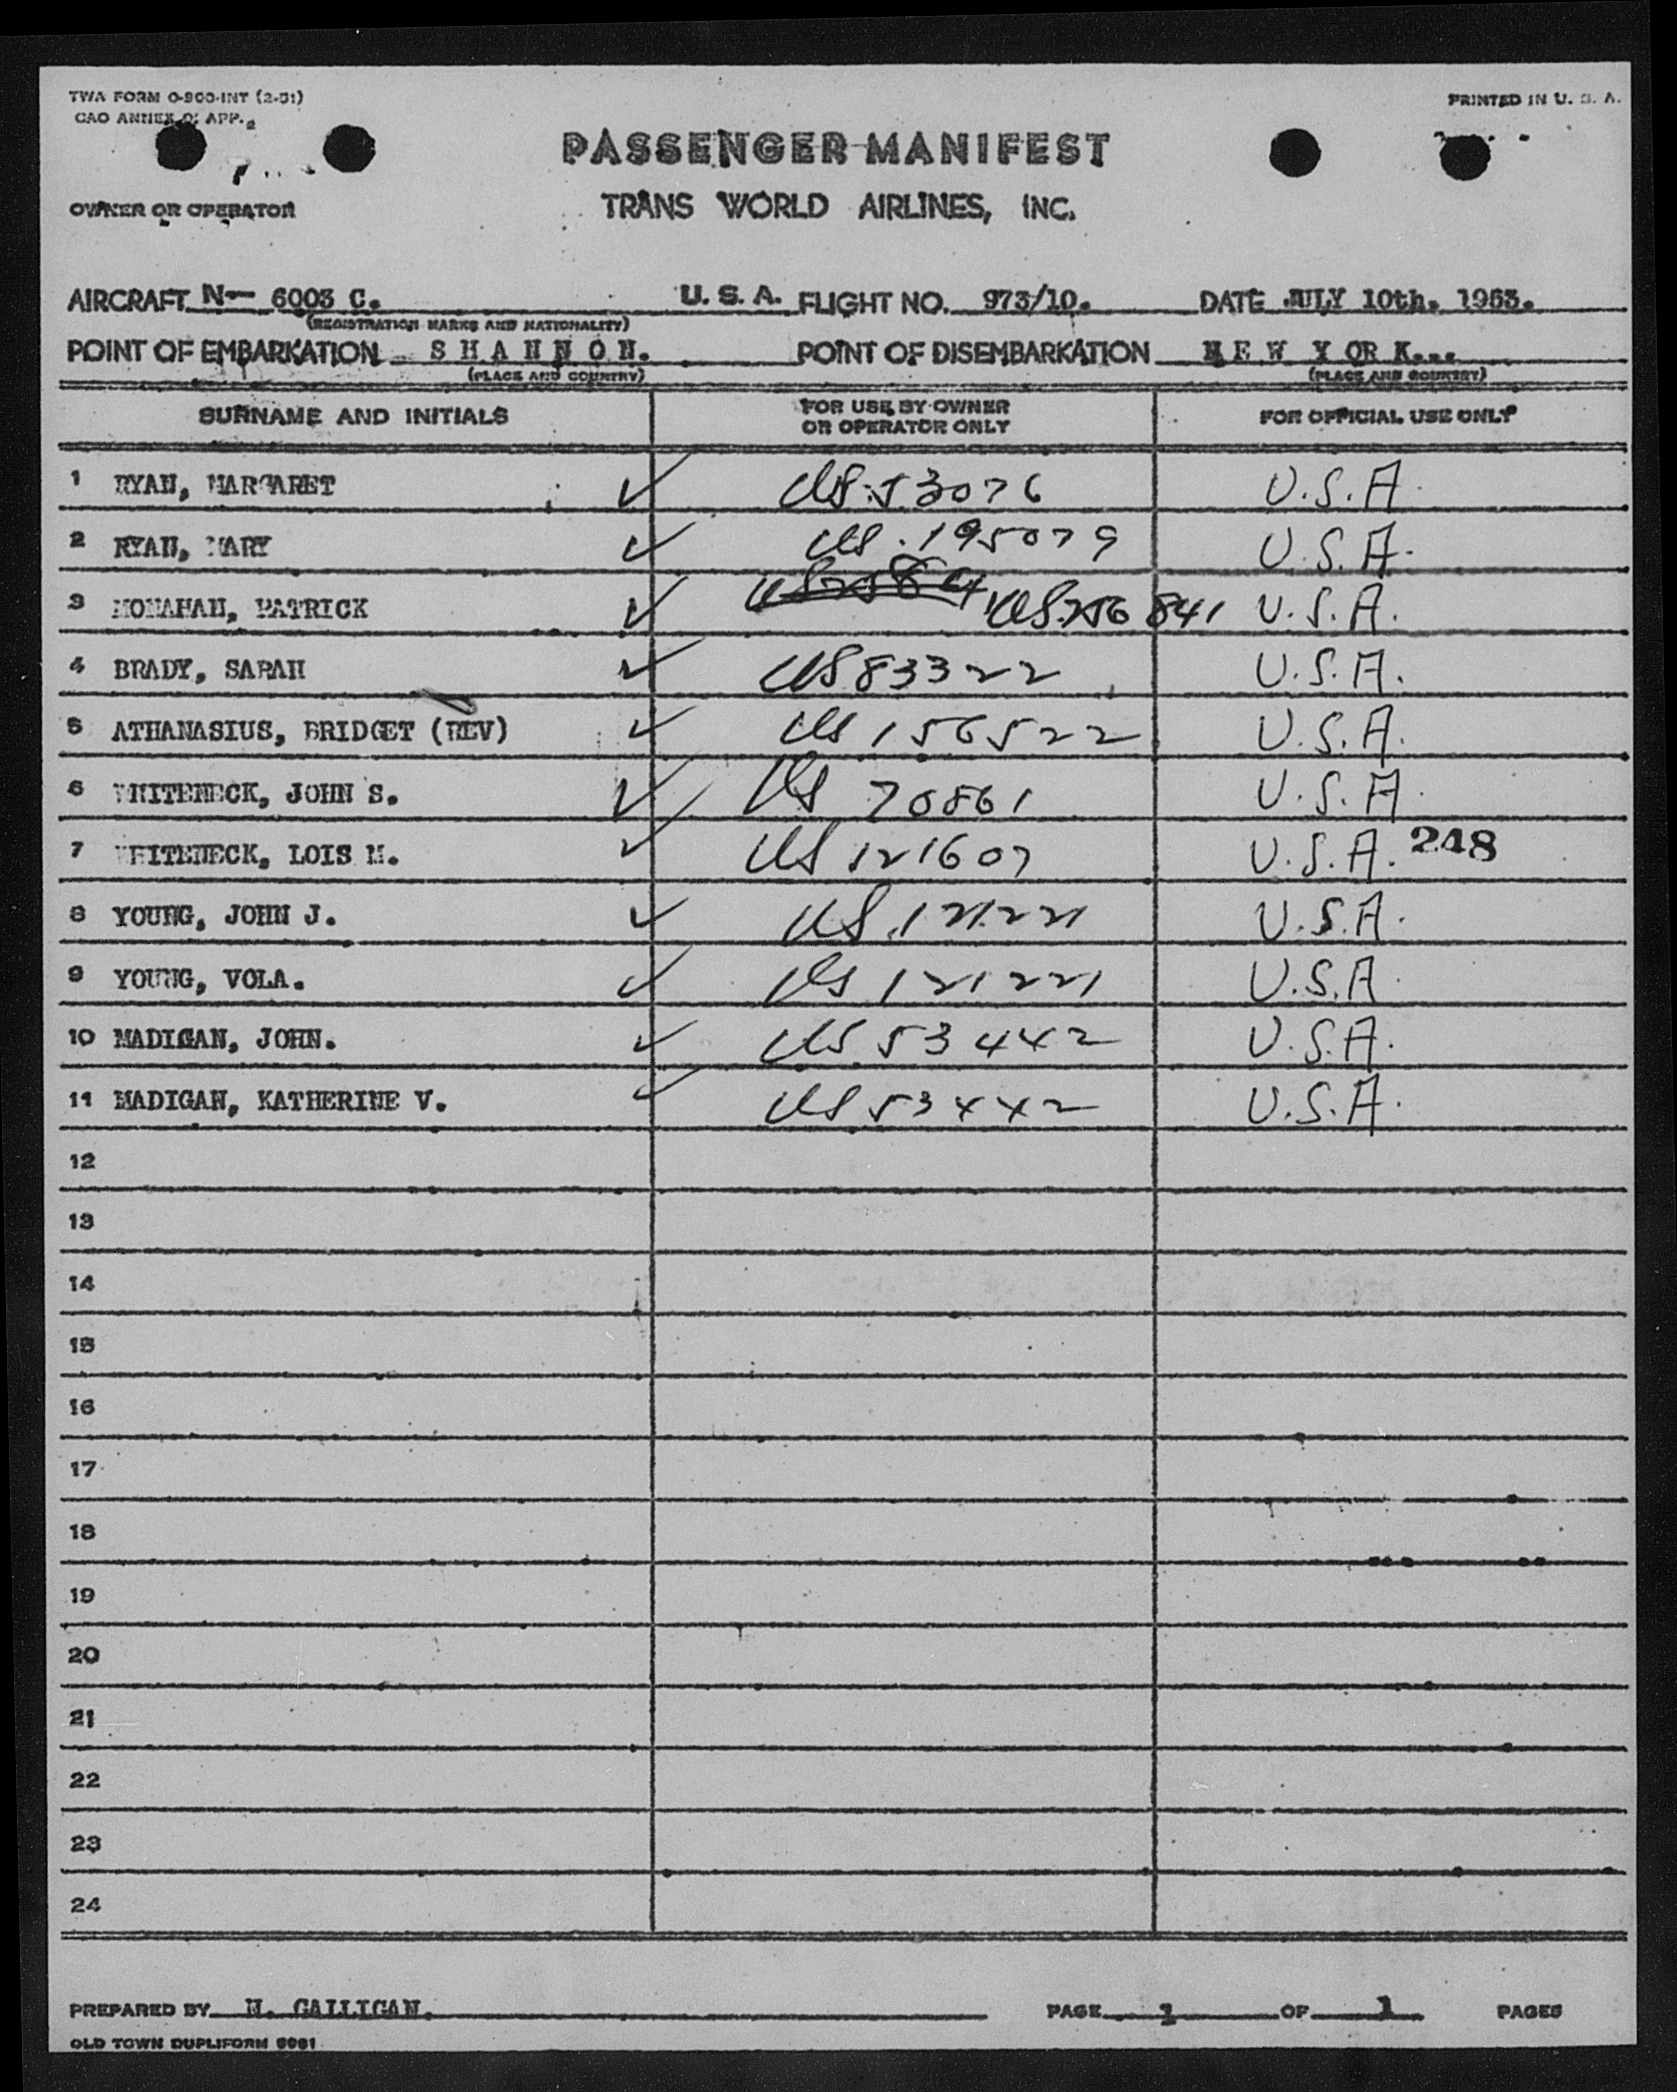 TWA FORM O-900-INT (2-51)
PRINTED IN U. S. A.
CAO ANNEX 9: APP. 2
PASSENGER MANIFEST
OWNER OR OPERATOR
TRANS WORLD AIRLINES, INC.
AIRCRAFT N- 6003 C. U. S. A. FLIGHT NO. 973/10. DATE JULY 10th. 1953.
(REGISTRATION MARKS AND NATIONALITY)
POINT OF EMBARKATION S H A N N O N. POINT OF DISEMBARKATION N E W Y OR K...
(PLACE AND COUNTRY) (PLACE AND COUNTRY)
SURNAME AND INITIALS FOR USE BY OWNER OR OPERATOR ONLY FOR OFFICIAL USE ONLY
1 RYAN, MARGARET ✓ US. 53076 U.S.A.
2 RYAN, MARY ✓ US. 195079 U.S.A.
3 MONAHAN, PATRICK ✓ US. 256841 U.S.A.
4 BRADY, SARAH ✓ US 83322 U.S.A.
5 ATHANASIUS, BRIDGET (REV) ✓ US 156522 U.S.A.
6 WHITENECK, JOHN S. ✓ US 70861 U.S.A.
7 WHITENECK, LOIS M. ✓ US 121607 U.S.A. 248
8 YOUNG, JOHN J. ✓ US. 121221 U.S.A.
9 YOUNG, VOLA. ✓ US 121221 U.S.A.
10 MADIGAN, JOHN. ✓ US 53442 U.S.A.
11 MADIGAN, KATHERINE V. ✓ US 53442 U.S.A.
12
13
14
15
16
17
18
19
20
21
22
23
24
PREPARED BY N. GALLIGAN. PAGE 1 OF 1 PAGES
OLD TOWN DUPLIFORM 9061